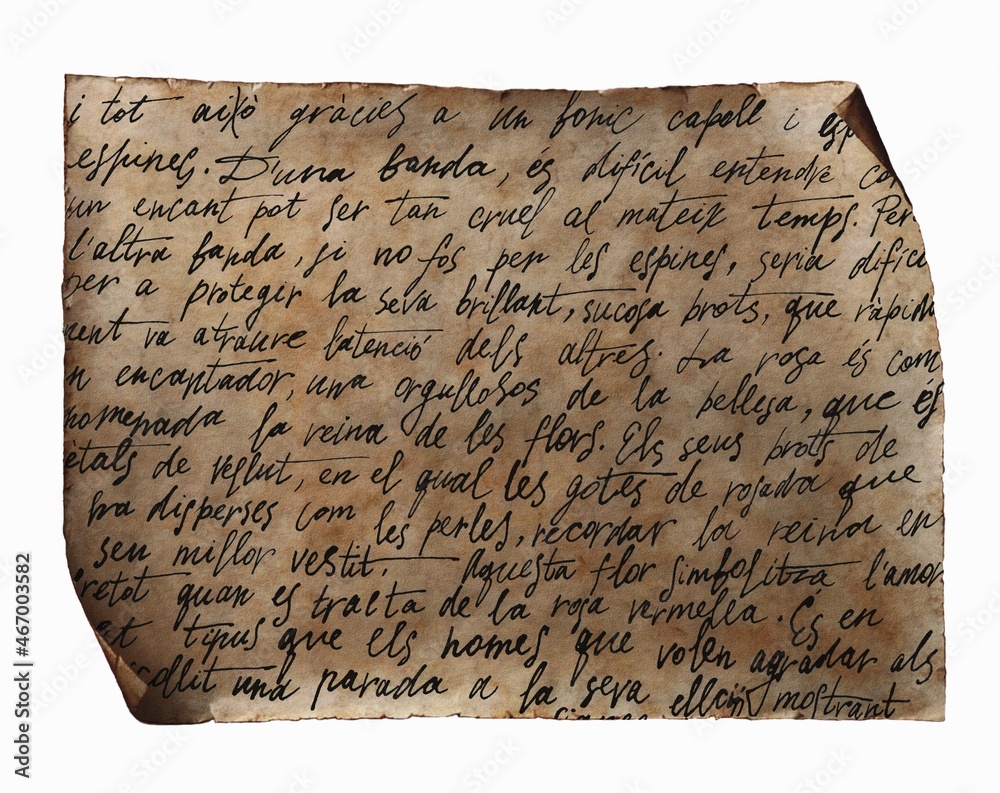 i tot això gràcies a un bonic capoll i esp
espines. D'una banda, és difícil entendre co
un encant pot ser tan cruel al mateix temps. Per
l'altra banda, si no fos per les espines, seria difíci
per a protegir la seva brillant, sucosa brots, que ràpida
ment va atraure l'atenció dels altres. La rosa és com
n encantador, una orgullosos de la bellesa, que és
nomenada la reina de les flors. Els seus brots de
ètals de vellut, en el qual les gotes de rosada que
ha disperses com les perles, recordar la reina en
seu millor vestit. Aquesta flor simbolitza l'amor
retot quan es tracta de la rosa vermella. És en
at tipus que els homes que volen agradar als
ollit una parada a la seva mostrant
Adobe Stock | #467003582
Adobe Stock